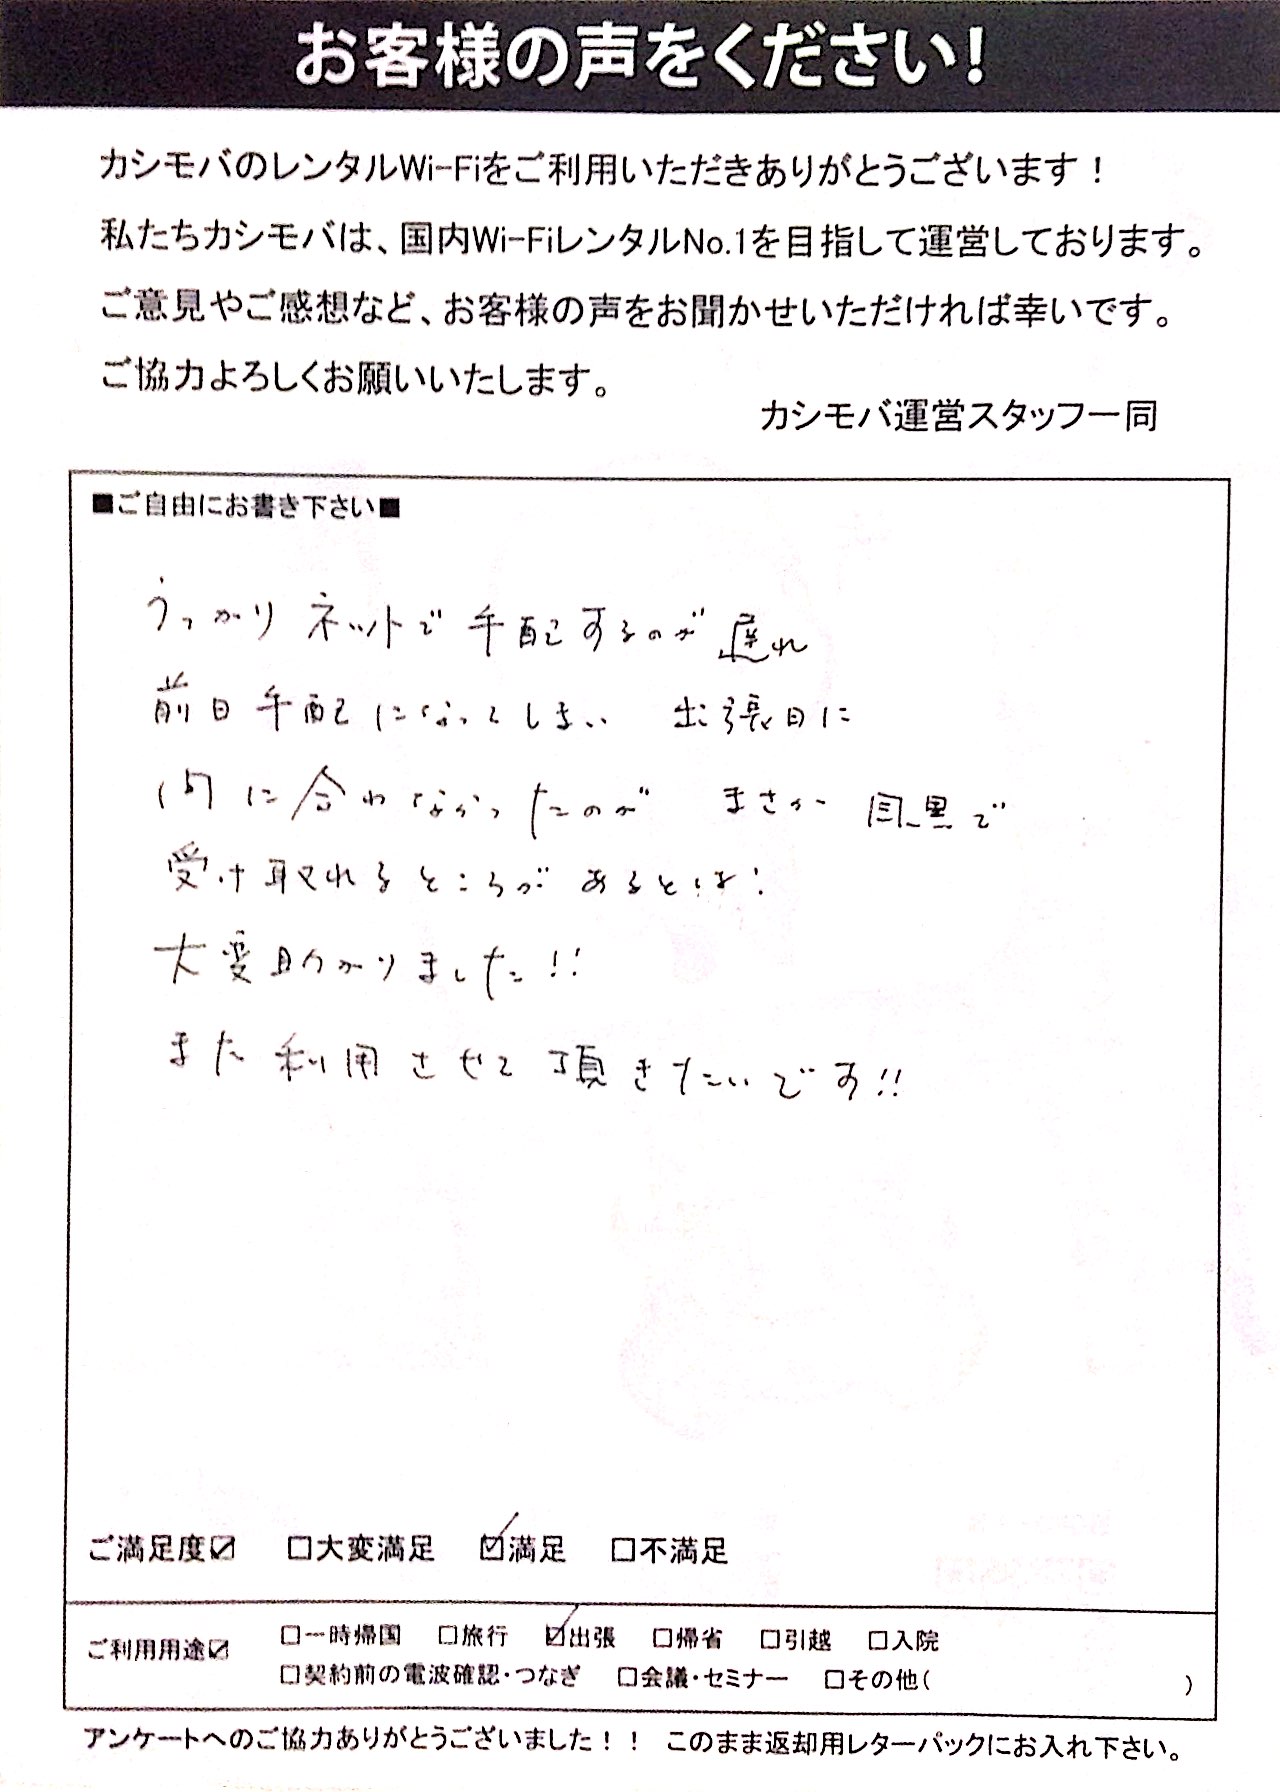 お客様の声をください!
カシモバのレンタルWi-Fiをご利用いただきありがとうございます！
私たちカシモバは、国内Wi-FiレンタルNo.1を目指して運営しております。
ご意見やご感想など、お客様の声をお聞かせいただければ幸いです。
ご協力よろしくお願いいたします。
カシモバ運営スタッフ一同
■ご自由にお書き下さい■
うっかりネットで手配するのが遅れ
前日手配になってしまい 出張日に
間に合わなかったのが まさか 目黒で
受け取れるところがあるとは!
大変助かりました!!
また利用させて頂きたいです!!
ご満足度☑ □大変満足 ☑満足 □不満足
ご利用用途☑ □一時帰国 □旅行 ☑出張 □帰省 □引越 □入院
□契約前の電波確認・つなぎ □会議・セミナー □その他( )
アンケートへのご協力ありがとうございました！！ このまま返却用レターパックにお入れ下さい。